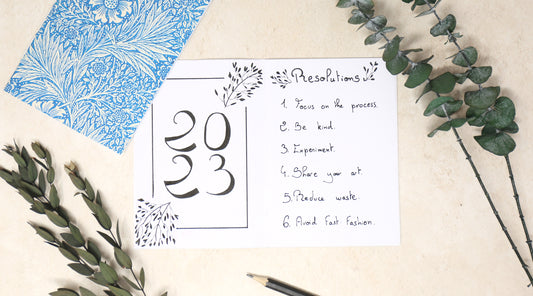 20
23
Resolutions
1. Focus on the process.
2. Be kind.
3. Experiment.
4. Share your art.
5. Reduce waste.
6. Avoid Fast Fashion.